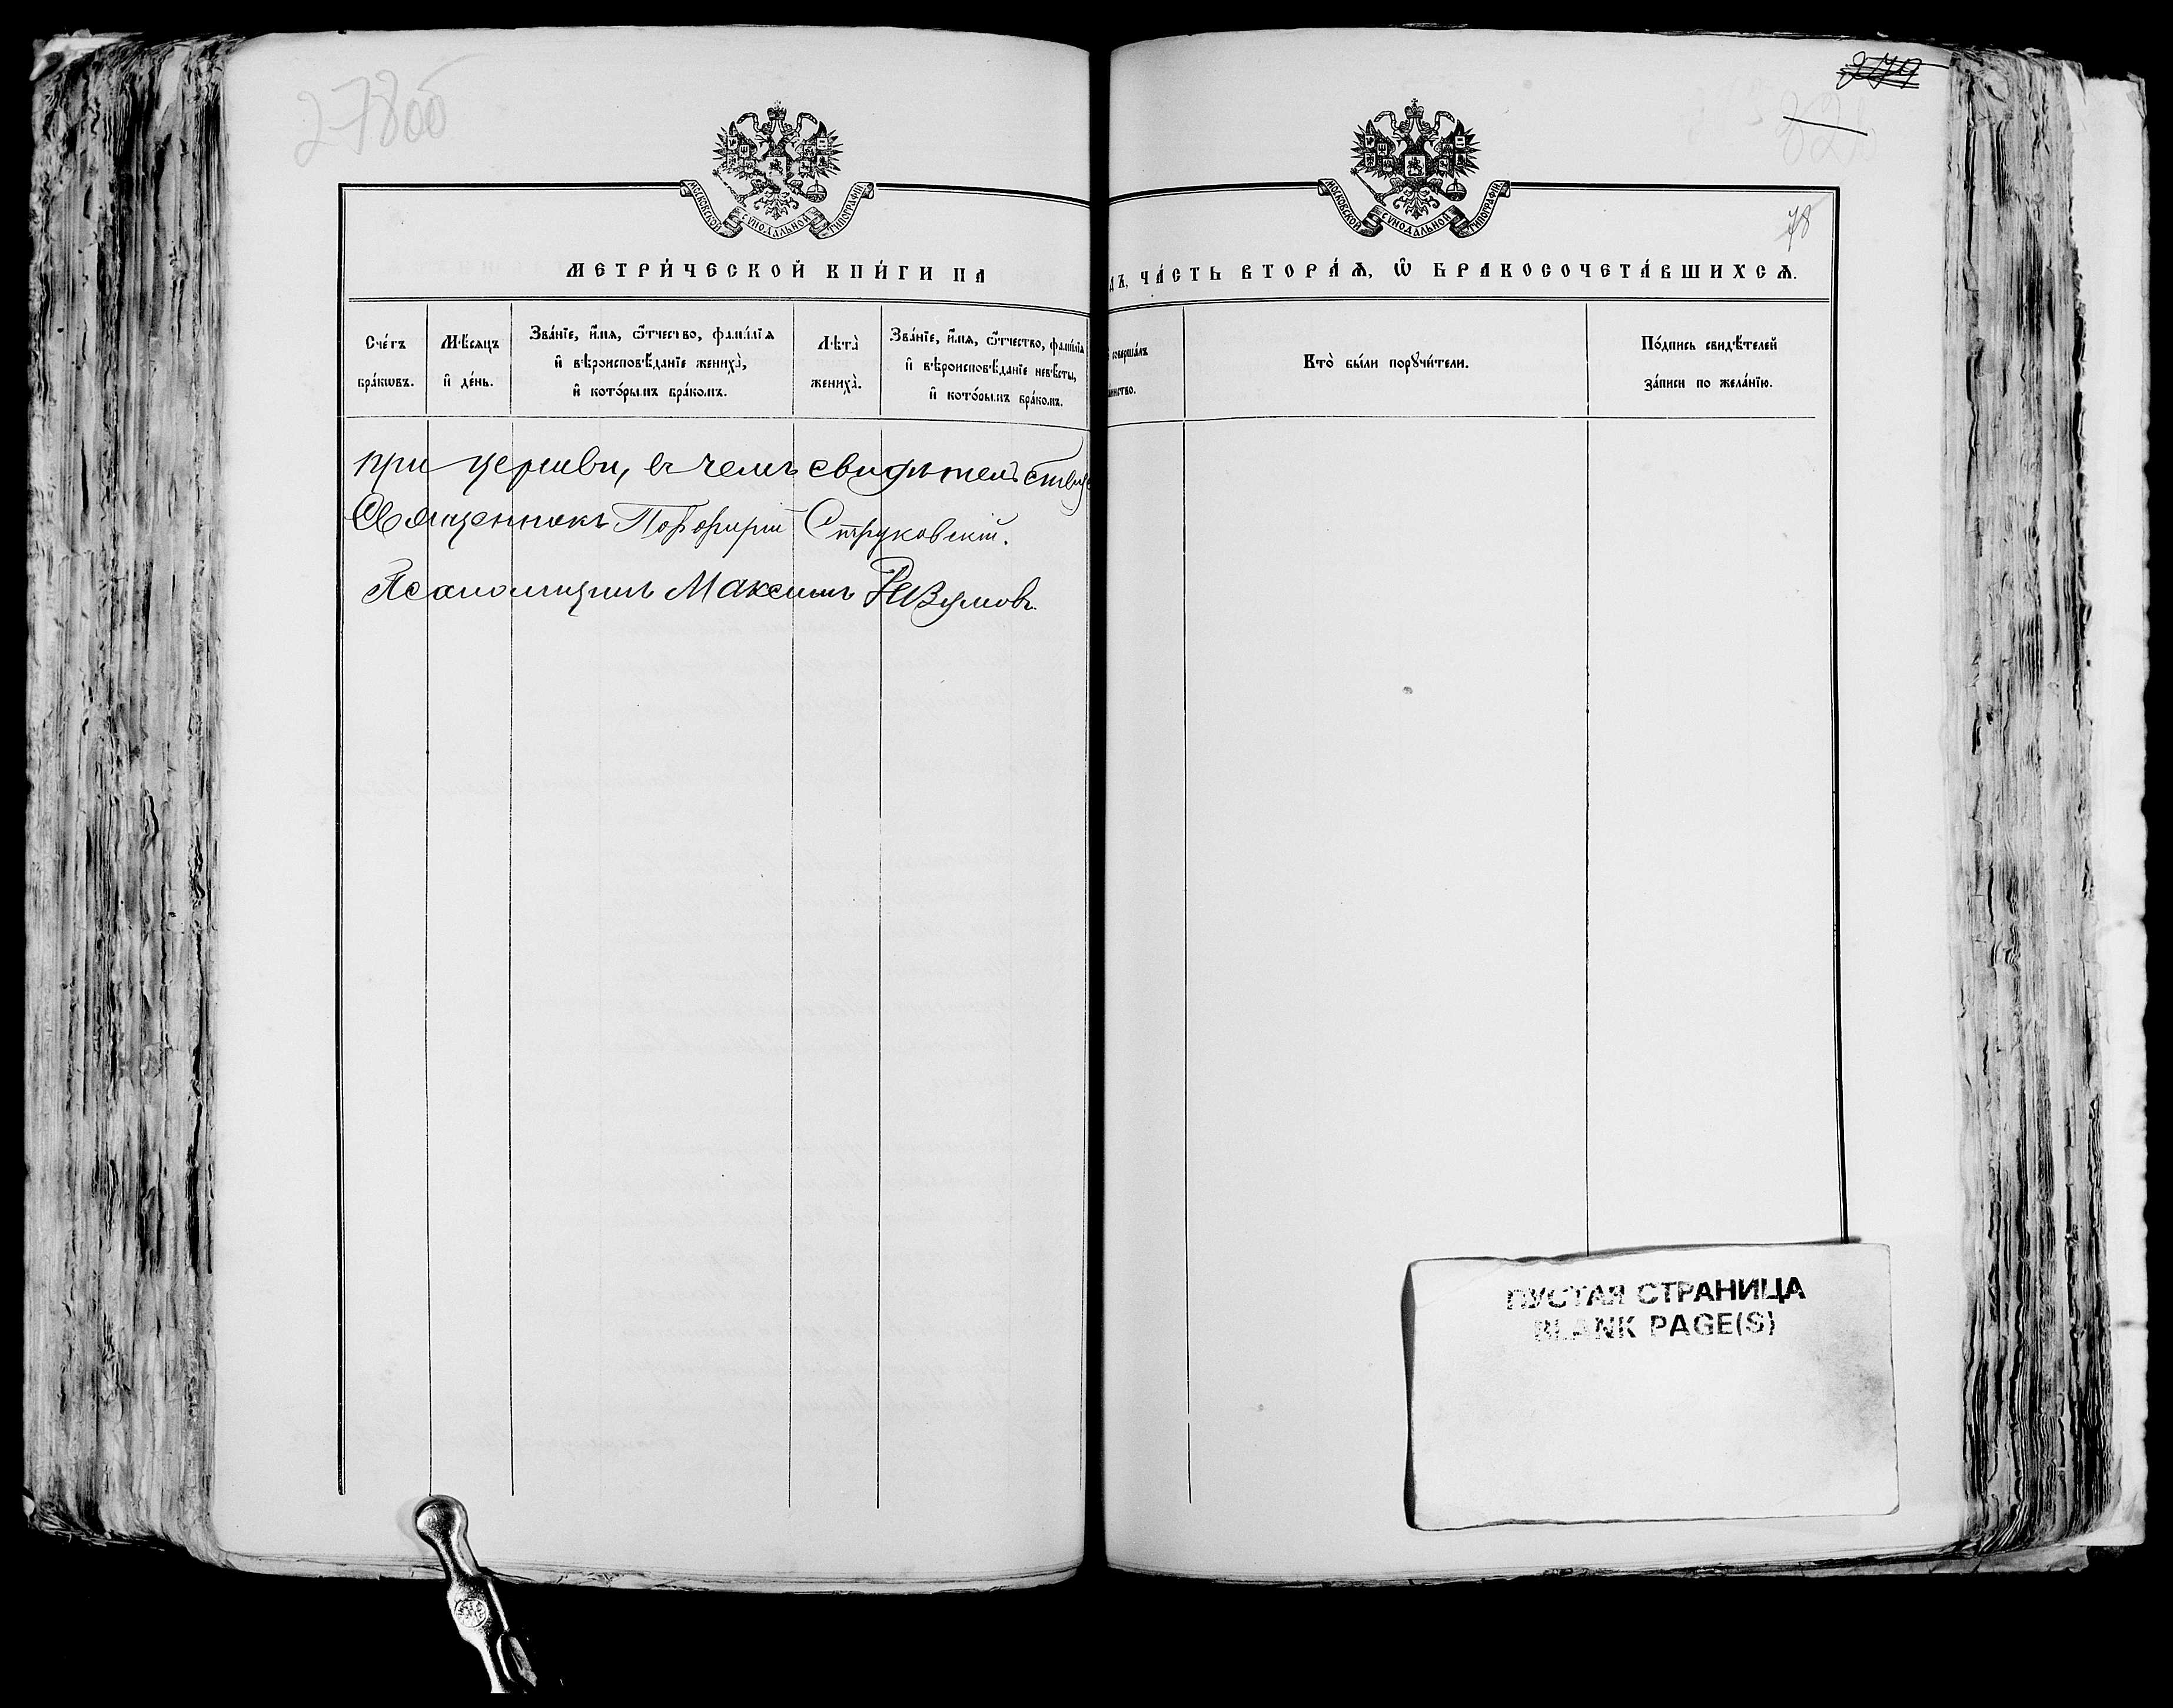 278об
МОСКОВСКОЙ СѴНОДАЛЬНОЙ ТИПОГРАФІИ
МЕТРИ́ЧЕСКОЙ КНИ́ГИ НА
Сче́тъ бра́кωвъ.
Мѣ́сяцъ и҆ де́нь.
Зва́нїе, и҆́мя, ѻ҆́тчество, фамилїя
и҆ вѣроисповѣ́данїе жениха̀,
и҆ кото́рымъ бра́комъ.
Лѣта̀ жениха̀.
Зва́нїе, и҆́мя, ѻ҆́тчество, фамилїя
и҆ вѣроисповѣ́данїе невѣ́сты,
и҆ кото́рымъ бра́комъ.
при церкви, въ чемъ свидѣтельствую
Священникъ Порфирій Струковскій.
Псаломщикъ Максимъ Разумовъ.
279
МОСКОВСКОЙ СѴНОДАЛЬНОЙ ТИПОГРАФІИ
78
ДЪ, ЧА́СТЬ ВТОРА́Ѧ, Ѡ҆ БРАКОСОЧЕТА́ВШИХСѦ.
соверша́лъ
Кто̀ бы́ли порꙋчи́тели.
По́дпись свидѣ́телей
за́писи по жела́нїю.
ПУСТАЯ СТРАНИЦА
BLANK PAGE(S)